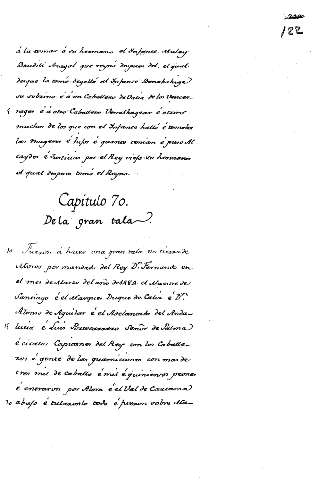 122
á la tomar á su hermano el Infante Muley
Baudili Azagal que reynó despues del, el qual
desque la tomó degolló al Infante Benahahige
su sobrino é á un Caballero de Ortia de los Vencer-
5 rages é á otro Caballero é á otros
muchos de los que con el Infante halló é
las mugeres é hijos é quantos é puso Al
caydes é Justicias por el Rey viejo su hermano
el qual despues tomó el Reyno.
Capítulo 70.
De la gran tala
10 Fueron á hacer una gran tala en tierra de
Moros por mandado del Rey Dn. Fernando en
el mes de Marzo del año de 1484. el Maestre de
Santiago é el Marques Duque de Caliz é Dn.
Alonso de Aguilar é el Adelantado del Anda
15 lucia é Luis Portocarrero Señor de Palma
é ciertos Capitanes del Rey con los Caballe-
ros é gente de las guarniciones con mas de
tres mil de caballo é mil é quinientos peones
é entraron por Alora é el Val de Cartama
20 abajo é talaronlo todo é fueron sobre Ma-